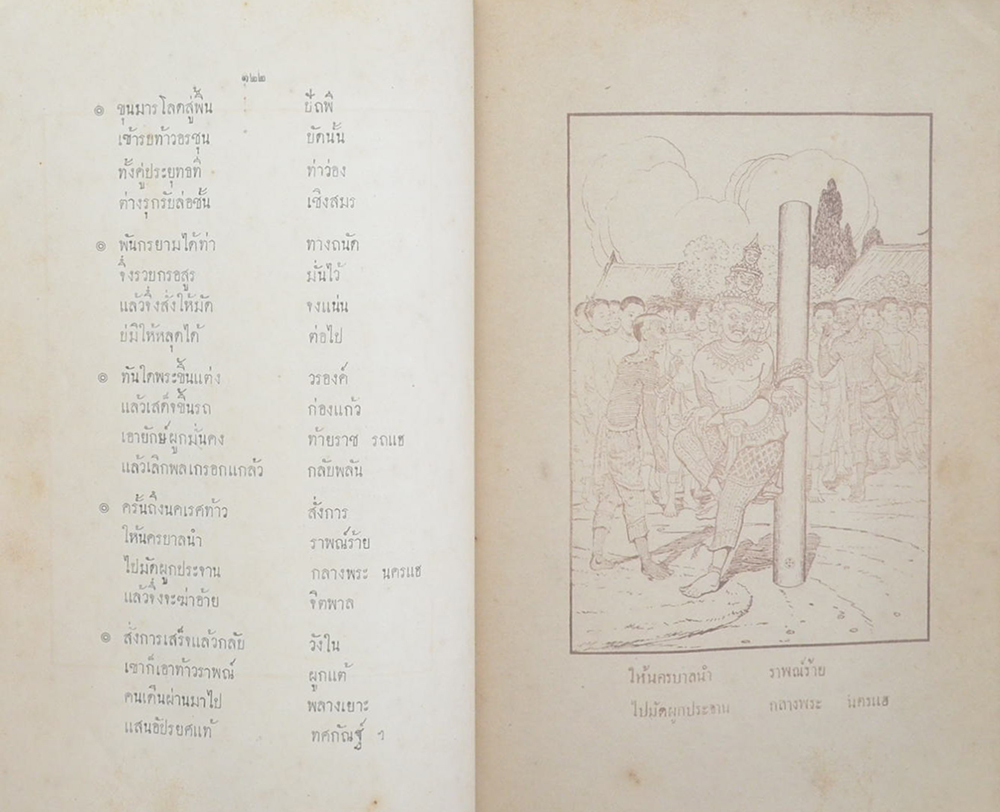 ๑๒๒
๏ ขุนมารโลดสู่พื้น ยัถพี
เข้ารบท้าวอรชุน บัดนั้น
ทั้งคู่ประยุทธที ท่าว่อง
ต่างรุกรับล่อชั้น เชิงสมร
๏ พันกรยามได้ท่า ทางถนัด
จึ่งรวบกรอสูร มั่นไว้
แล้วจึ่งสั่งให้มัด จงแน่น
บ่มิให้หลุดได้ ต่อไป
๏ ทันใดพระขึ้นแต่ง วรองค์
แล้วเสด็จขึ้นรถ ก่องแก้ว
เอายักษ์ผูกมั่นคง ท้ายราช รถแฮ
แล้วเลิกพลเกรอกแกล้ว กลับพลัน
๏ ครั้นถึงนคเรศท้าว สั่งการ
ให้นครบาลนำ ราพณ์ร้าย
ไปมัดผูกประจาน กลางพระ นครแฮ
แล้วจึ่งจะฆ่าอ้าย จิตพาล
๏ สั่งการเสร็จแล้วกลับ วังใน
เขาก็เอาท้าวราพณ์ ผูกแต้
คนเดินผ่านมาไป พลางเยาะ
แสนอัปรยศแท้ ทศกัณฐ์ ฯ
ให้นครบาลนำ ราพณ์ร้าย
ไปมัดผูกประจาน กลางพระ นครแฮ